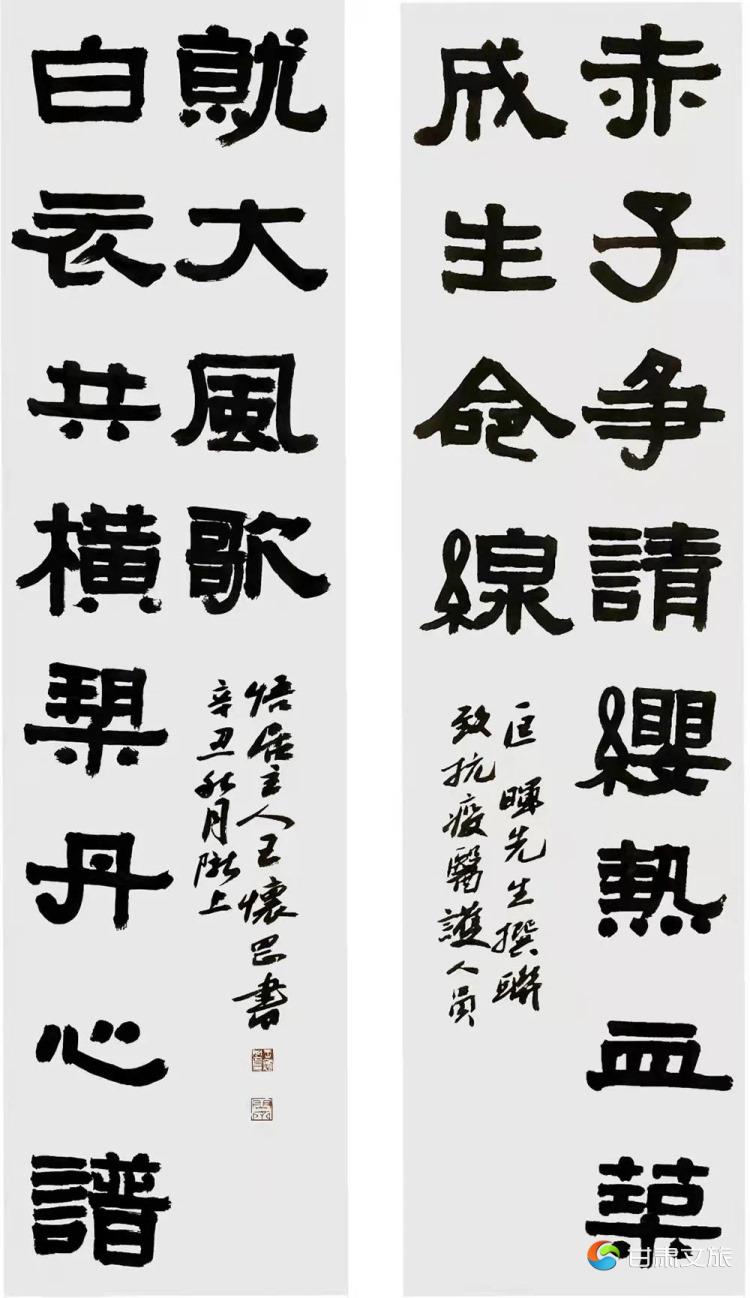 赤子争請纓熱血築
成生命線
匡暉先生撰聯
致抗疫醫護人員
白衣共橫琴丹心譜
就大風歌
辛丑秋月隴上
悟居主人王懷書
甘肃文旅